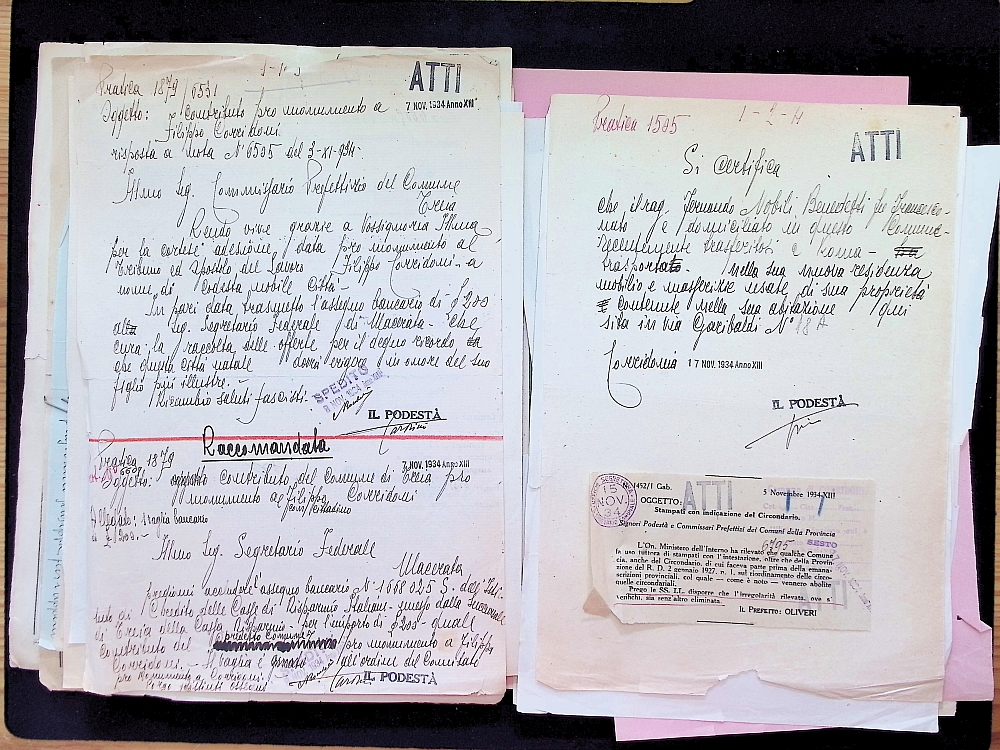 ATTI
Pratica 1879/6531
7 NOV. 1934 Anno XIII
Oggetto: Contributo pro monumento a
Filippo Corridoni
risposta a nota N° 6505 del 3-XI-934-
Ill.mo Sig. Commissario Prefettizio del Comune
Treia
Rendo vive grazie a Vossignoria Ill.ma
per la cortese adesione, data pro monumento al
Tribuno ed Apostolo del Lavoro Filippo Corridoni - a
nome di codesta nobile Città -
In pari data trasmetto l'assegno bancario di £ 200
Sig. Segretario Federale di Macerata - che
cura la raccolta delle offerte per il degno ricordo
che questa città natale dovrà erigere in onore del suo
figlio più illustre. -
Ricambio saluti fascisti. -
SPEDITO
IL PODESTÀ
Raccomandata
Pratica 1879
6609
7 NOV. 1934 Anno XIII
Oggetto: contributo del Comune di Treia pro
monumento a Filippo Corridoni
Allegato: vaglia bancario
di £ 200. -
Ill.mo Sig. Segretario Federale
Macerata
l'assegno bancario N° 1068025 S.
di Credito delle Casse di Risparmio Italiane - emesso dalla succursale
di Treia della Cassa Risparmio - per l'importo di £ 200 - quale
contributo del predetto Comune pro monumento a Filippo
Corridoni. - Il vaglia è all'ordine del Comitato
pro Monumento a Corridoni
IL PODESTÀ
Pratica 1595
1-2-4
ATTI
Si certifica
che il rag. Fernando Nobili Benedetti fu Francesco -
nato e domiciliato in questo Comune -
recentemente trasferitosi a Roma -
nella sua nuova residenza
mobilio e masserizie usate di sua proprietà
contenute nella sua abitazione qui
sita in via Garibaldi N° 18 A
Corridonia 17 NOV. 1934 Anno XIII
IL PODESTÀ
1452/1 Gab. 5 Novembre 1934-XIII
15 NOV. 34
ATTI
OGGETTO:
Stampati con indicazione del Circondario.
Signori Podestà e Commissari Prefettizi dei Comuni della Provincia
6795
SESTO
L'On. Ministero dell'Interno ha rilevato che qualche Comune
fa uso tuttora di stampati con l'intestazione, oltre che della Provin-
cia, anche del Circondario, di cui faceva parte prima della emana-
zione del R. D. 2 gennaio 1927. n. 1, sul riordinamento delle circo-
scrizioni provinciali, col quale — come è noto — vennero abolite
quelle circondariali.
Prego le SS. LL. disporre che l'irregolarità rilevata, ove si
verifichi, sia senz'altro eliminata.
IL PREFETTO: OLIVERI